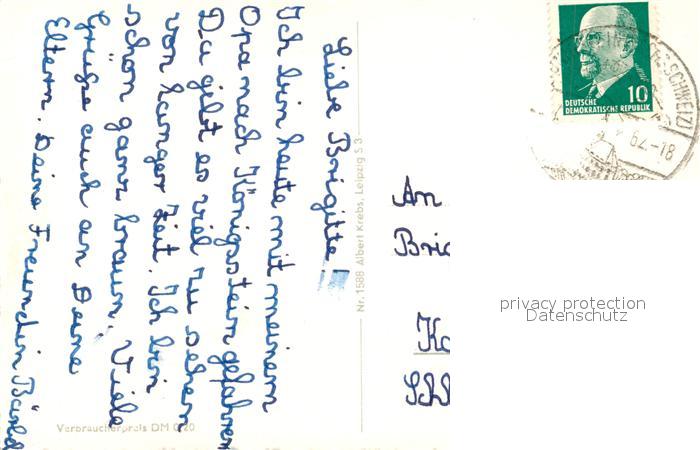 Liebe Brigitte!
Ich bin heute mit meinem
Opa nach Königsstein gefahren
Da gibt es viel zu sehen
von hunger Zeit. Ich bin
schön ganz braun. Viele
Grüße auch an Deine
Eltern. Deine Freundin Bärbel
Verbraucherpreis DM 0,20
Nr. 1588 Albert Krebs, Leipzig S 3
10
DEUTSCHE
DEMOKRATISCHE REPUBLIK
SCHWEIZ)
62.-18
An
Brig
privacy protection
Datenschutz